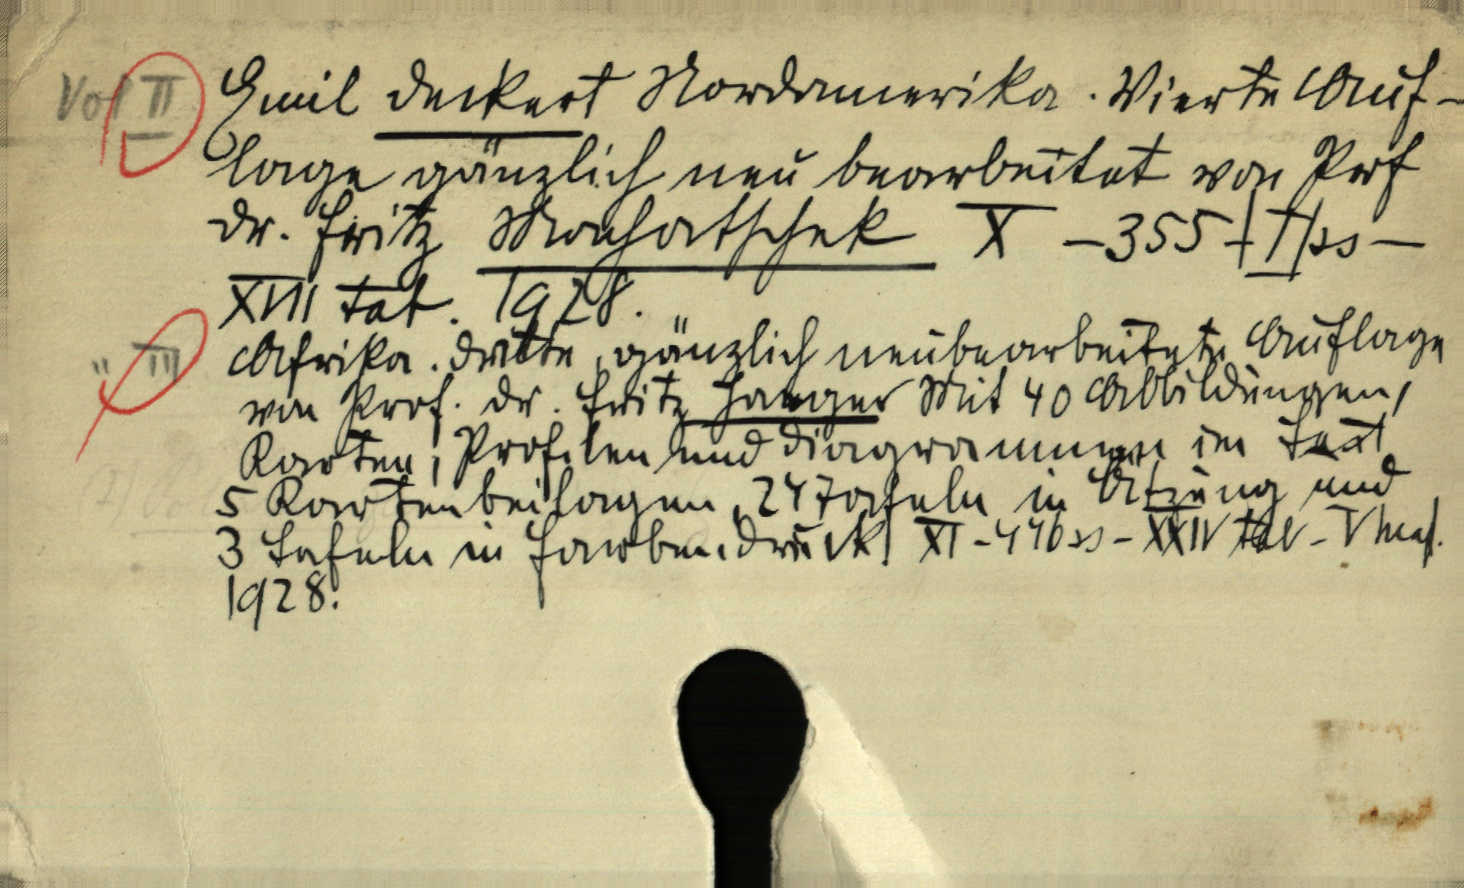 Vol II Emil Deckert Nordamerika. Vierte Auf-
lage gänzlich neu bearbeitet von Prof
Dr. Fritz Machatschek X - 355 ss -
XVII taf. 1928.
" III Afrika. Dritte, gänzlich neubearbeitete Auflage
von Prof. Dr. Fritz Jaeger Mit 40 Abbildungen,
Karten, Profilen und Diagrammen im Text
5 Kartenbeilagen, 24 Tafeln in Ätzung und
3 Tafeln in Farbendruck XI - 446 ss - XXIV taf - V
1928.